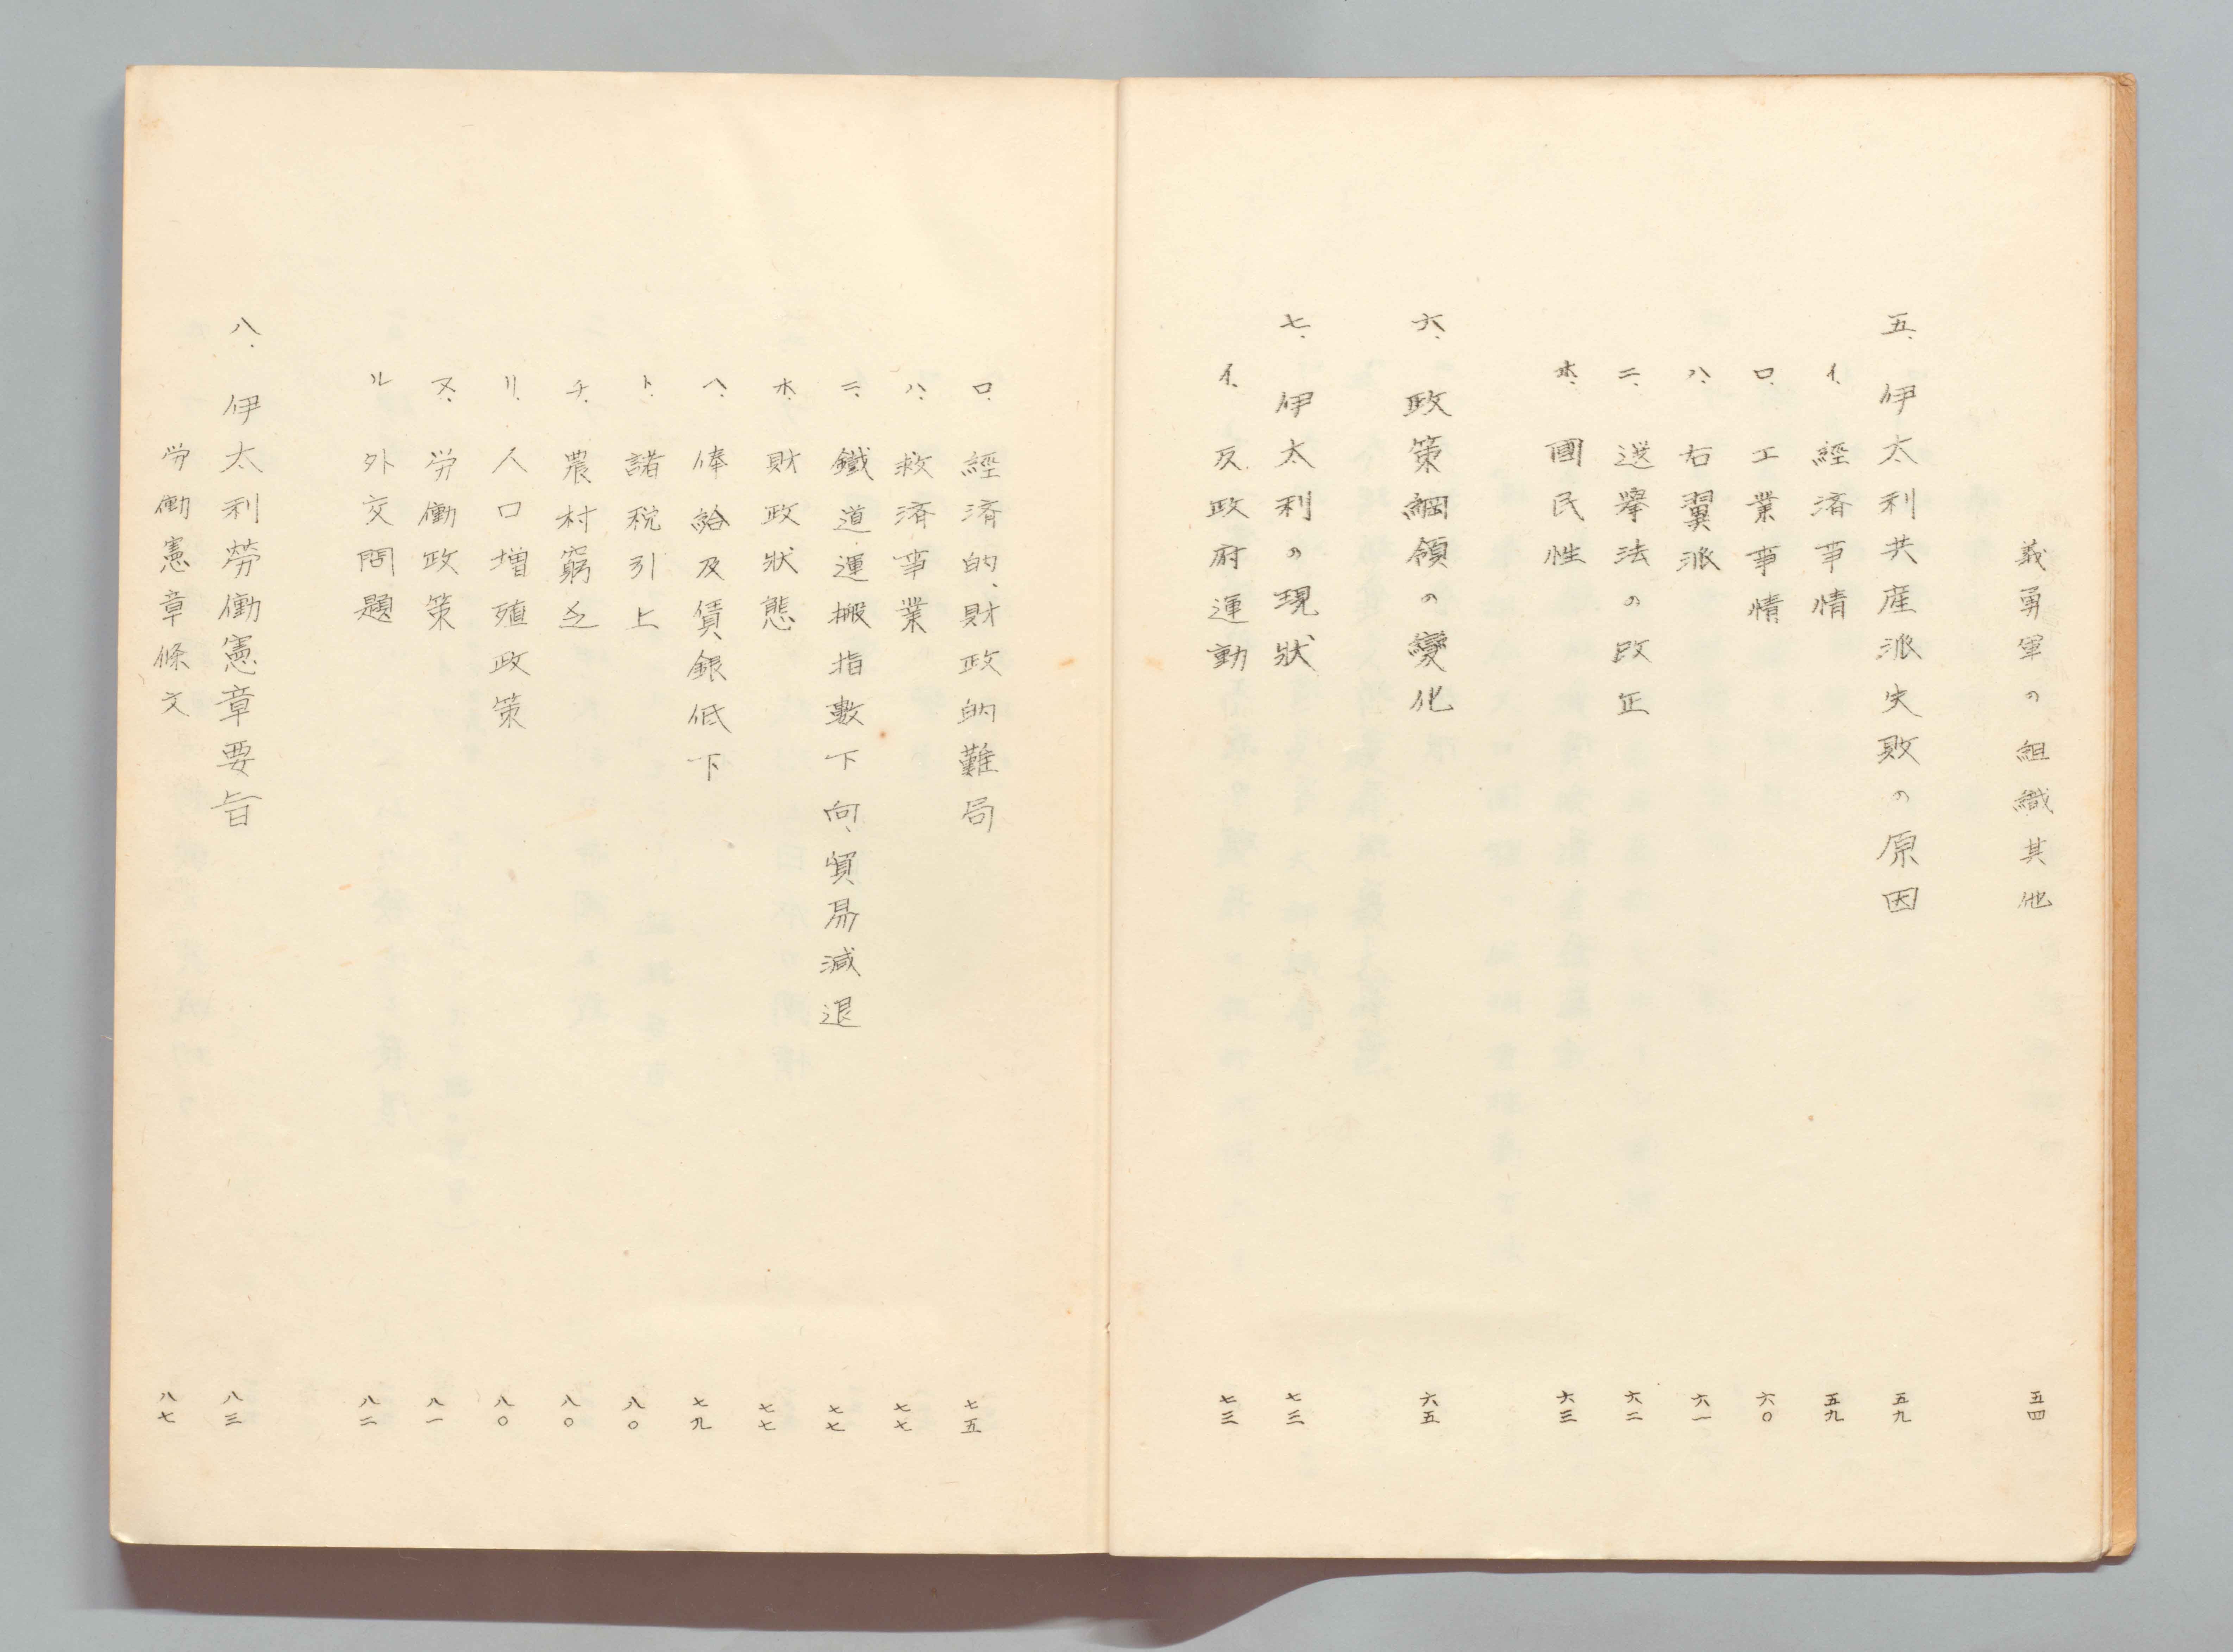 義勇軍の組織其他 五四
五、伊太利共産派失敗の原因 五九
イ、経済事情 五九
ロ、工業事情 六〇
ハ、右翼派 六一
ニ、選擧法の改正 六二
ホ、國民性 六三
六、政策綱領の變化 六五
七、伊太利の現狀 七三
イ、反政府運動 七三
ロ、經済的、財政的難局 七五
ハ、救済事業 七七
ニ、鐵道運搬指数下向、貿易減退 七七
ホ、財政狀態 七七
ヘ、俸給及賃銀低下 七九
ト、諸税引上 八〇
チ、農村窮乏 八〇
リ、人口増殖政策 八〇
ヌ、労働政策 八一
ル 外交問題 八二
八、伊太利勞働憲章要旨 八三
労働憲章條文 八七